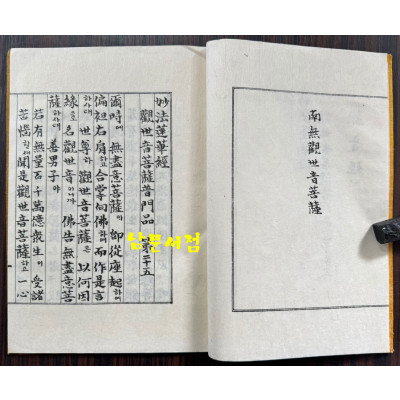 南無觀世音菩薩
妙法蓮華經
觀世音菩薩普門品 第二十五
爾時에 無盡意菩薩이 卽從座起하야
偏袒右肩하고 合掌向佛하며 而作是言
하사대 世尊하 觀世音菩薩은 以何因
緣으로 名觀世音이니까 佛告無盡意菩
薩하사대 善男子야
若有無量百千萬億衆生이 受諸
苦惱할새 聞是觀世音菩薩하고 一心
남문서점